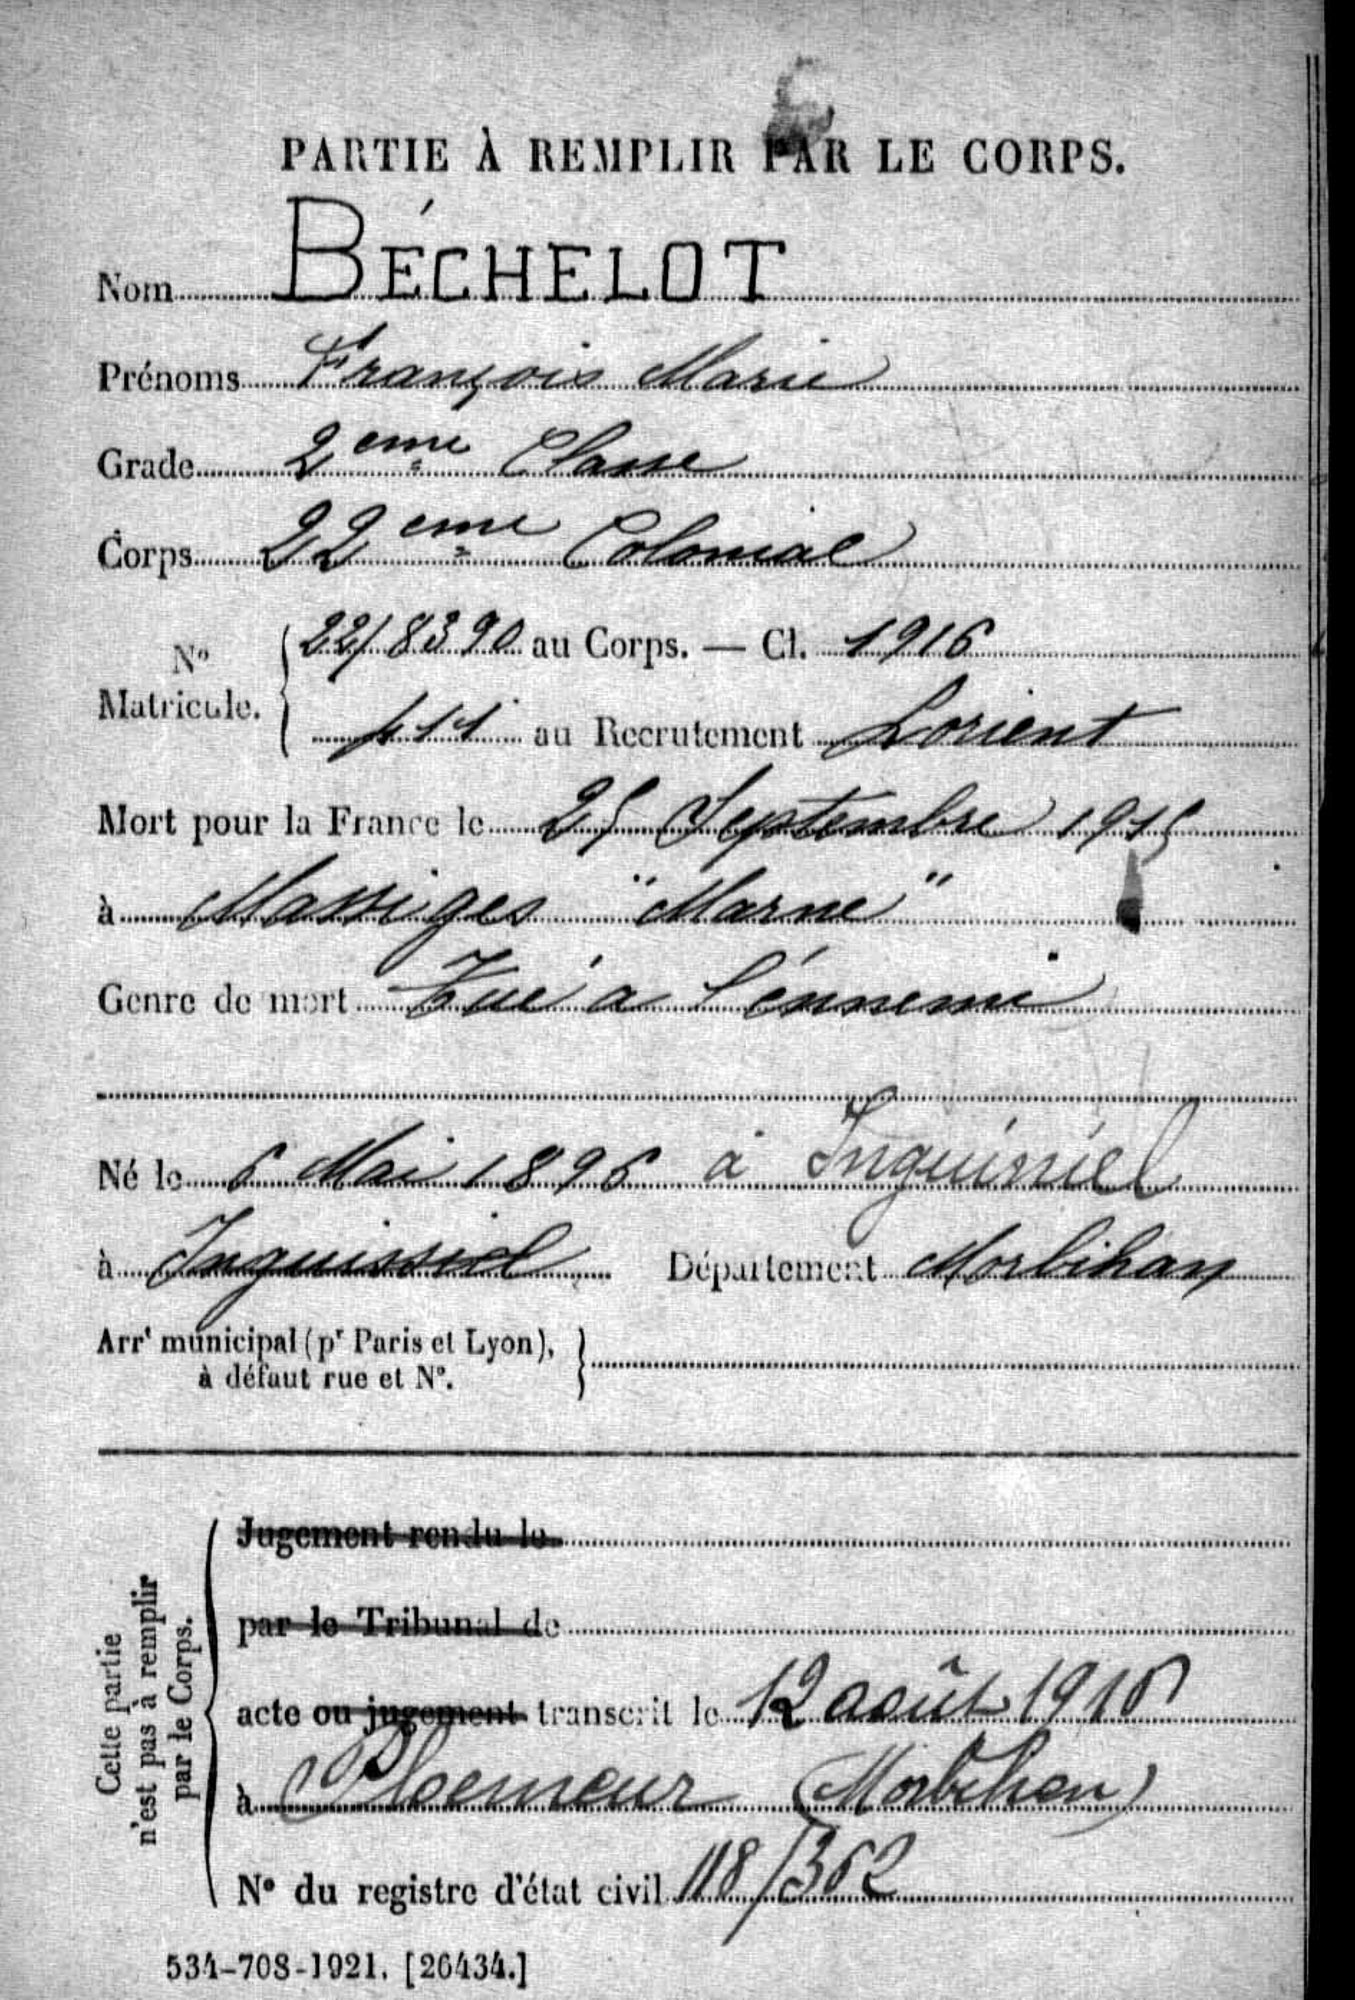 PARTIE À REMPLIR PAR LE CORPS.
Nom BÉCHELOT
Prénoms François Marie
Grade 2eme Classe
Corps 22eme Colonial
No Matricule. 22/8390 au Corps. — Cl. 1916
411 au Recrutement Lorient
Mort pour la France le 25 Septembre 1915
à Massiges "Marne"
Genre de mort Tué à l'énnemi
Né le 6 Mai 1896 à Inguiniel
à Département Morbihan
Arrt municipal (pr Paris et Lyon),
à défaut rue et No.
Cette partie
n'est pas à remplir
par le Corps.
Jugement rendu le
par le Tribunal de
acte ou jugement transcrit le 12 août 1916
à Ploemeur (Morbihan)
No du registre d'état civil 118/362
534-708-1921. [26434.]